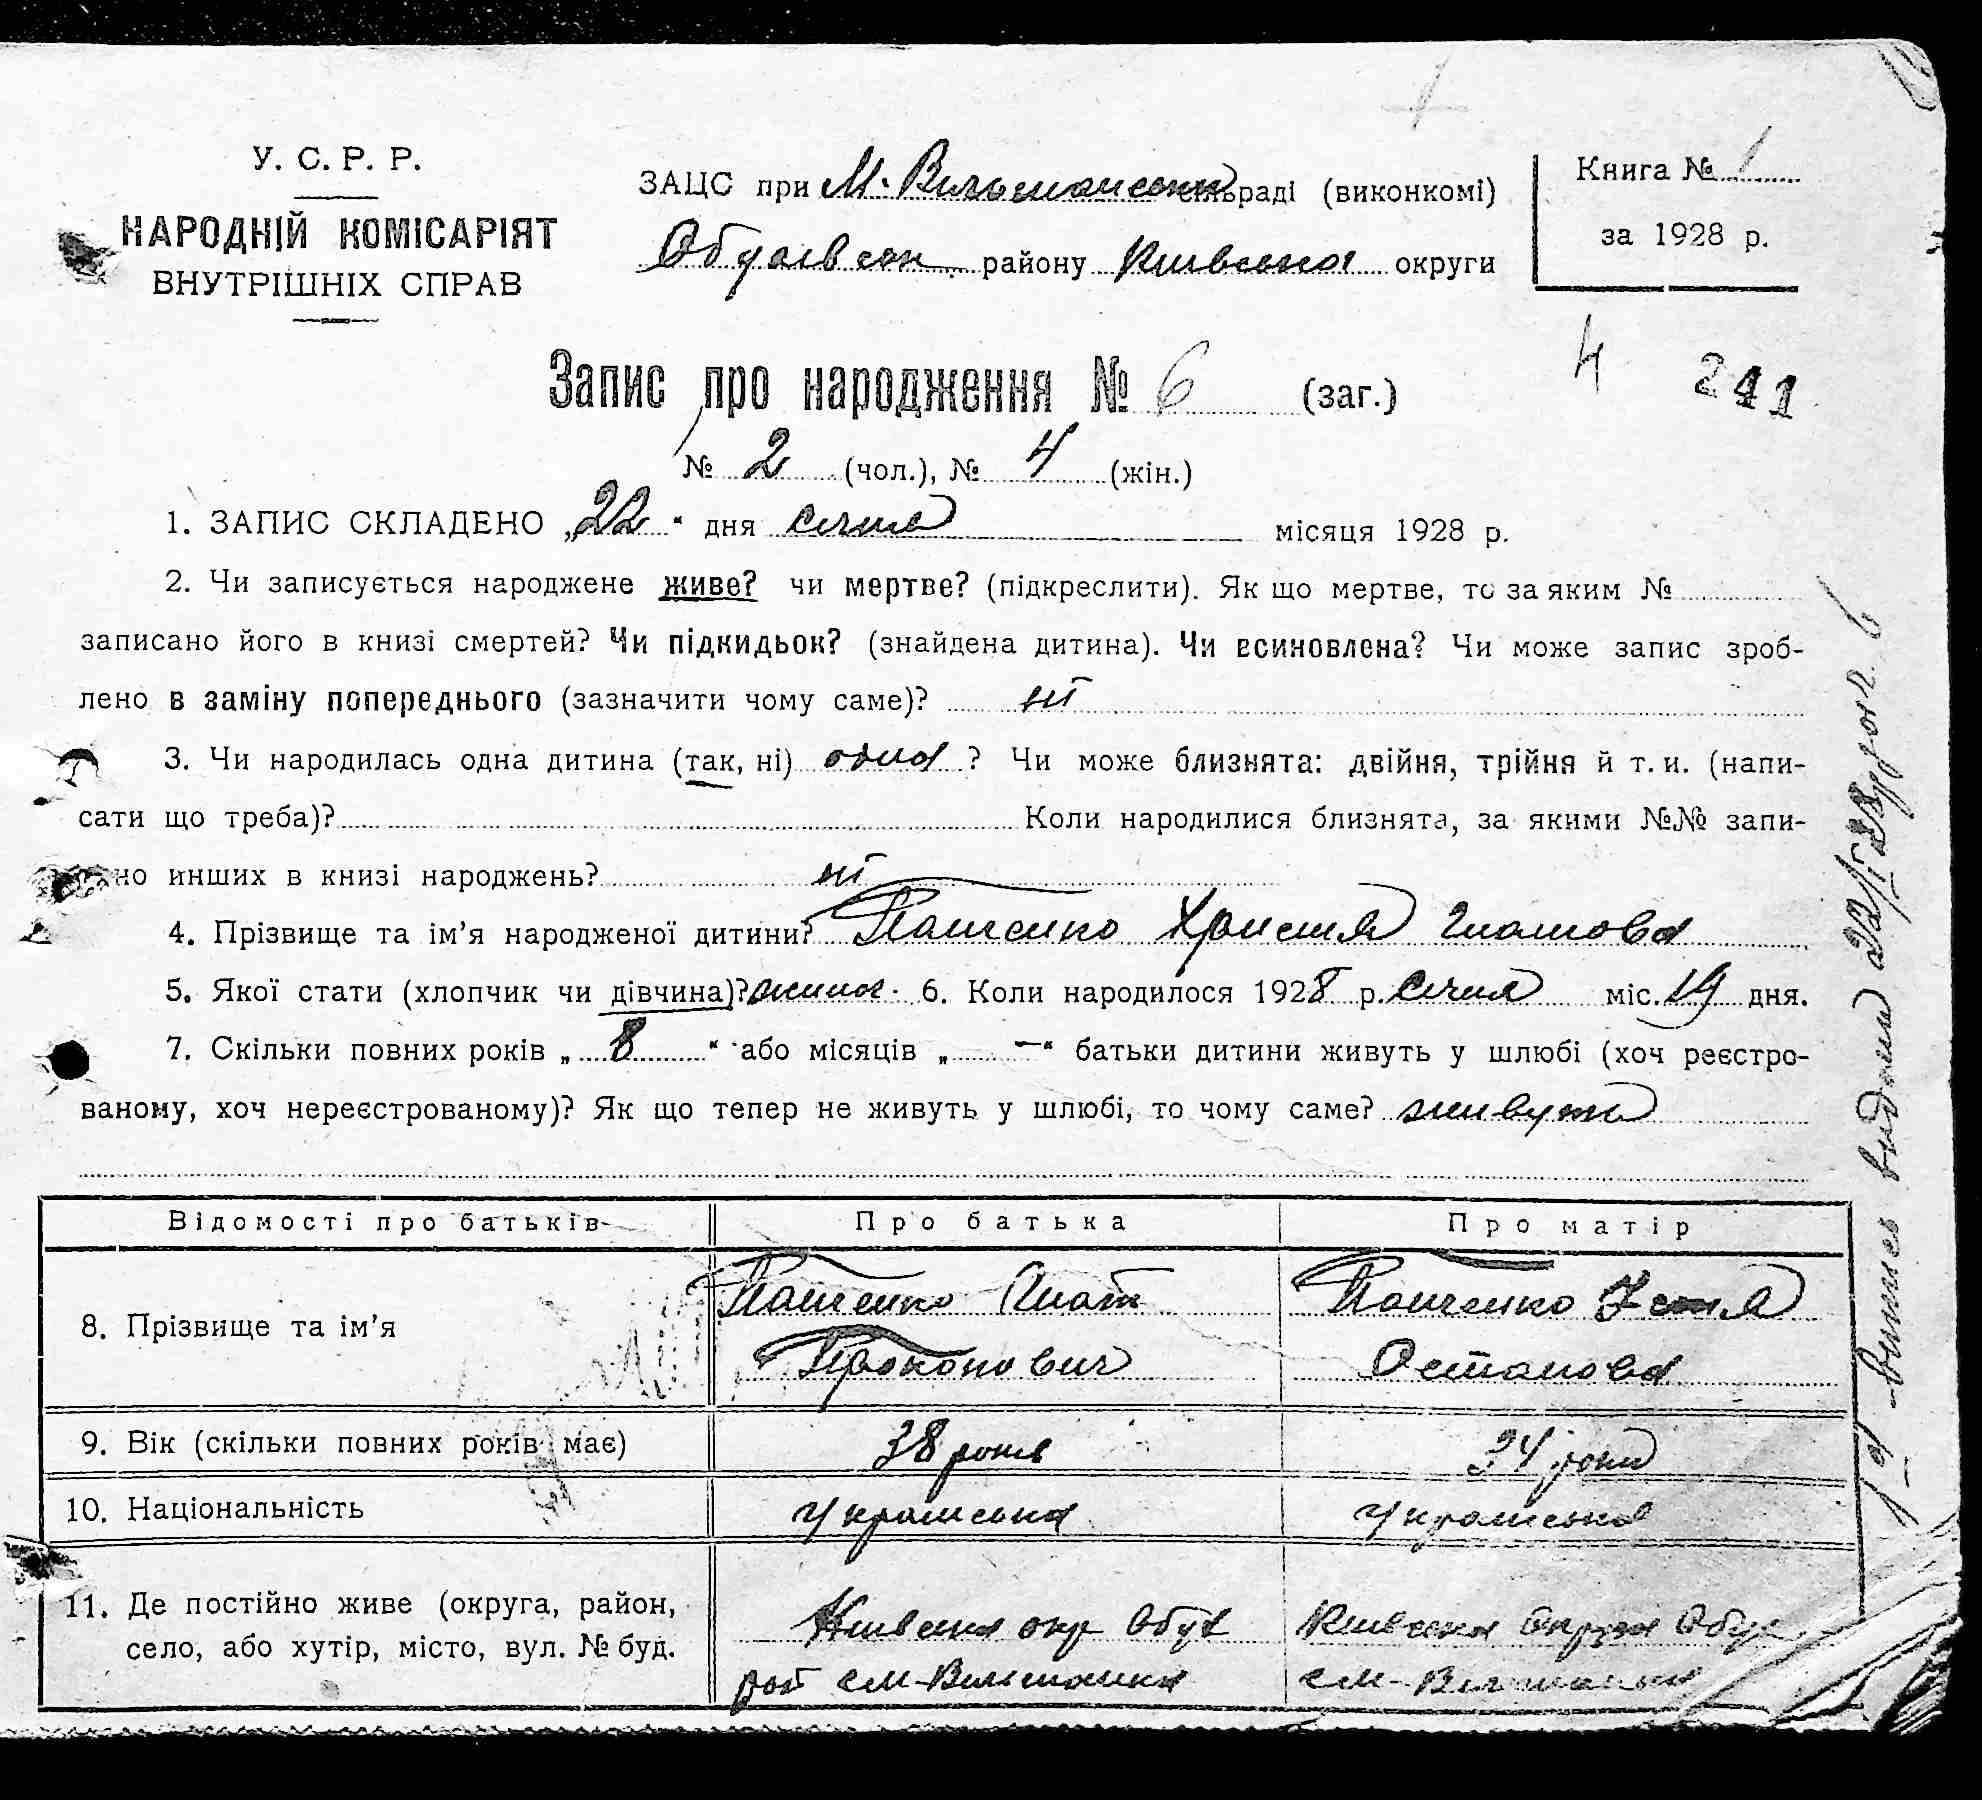 У. С. Р. Р.
НАРОДНІЙ КОМІСАРІЯТ
ВНУТРІШНІХ СПРАВ
ЗАЦС при М. Вільшанськ сільраді (виконкомі)
Обухівськ. району Київська округи
Книга № 1
за 1928 р.
4 241
Запис про народження № 6 (заг.)
№ 2 (чол.), № 4 (жін.)
1. ЗАПИС СКЛАДЕНО „22“ дня січня місяця 1928 р.
2. Чи записується народжене живе? чи мертве? (підкреслити). Як що мертве, то за яким №
записано його в книзі смертей? Чи підкидьок? (знайдена дитина). Чи всиновлена? Чи може запис зроб-
лено в заміну попереднього (зазначити чому саме)? ні
3. Чи народилась одна дитина (так, ні) одна ? Чи може близнята: двійня, трійня й т. и. (напи-
сати що треба)? Коли народилися близнята, за якими №№ запи-
но инших в книзі народжень? ні
4. Прізвище та ім’я народженої дитини? Пащенко Христя Гнатова
5. Якої стати (хлопчик чи дівчина)? жіноч. 6. Коли народилося 1928 р. січня міс. 19 дня.
7. Скільки повних років „ 8 “ або місяців „ — “ батьки дитини живуть у шлюбі (хоч реєстро-
ваному, хоч нереєстрованому)? Як що тепер не живуть у шлюбі, то чому саме? живуть
Відомості про батьків Про батька Про матір
8. Прізвище та ім’я
Пащенко Гнат
Прокопович
Пащенко Устя
Остапова
9. Вік (скільки повних років має) 38 років 34 роки
10. Національність українська українська
11. Де постійно живе (округа, район,
село, або хутір, місто, вул. № буд.
Київська окр Обух
рай с М-Вільшанка
Київська Округа Обух
с М-Вільшанка
витяг видани 22/I 28